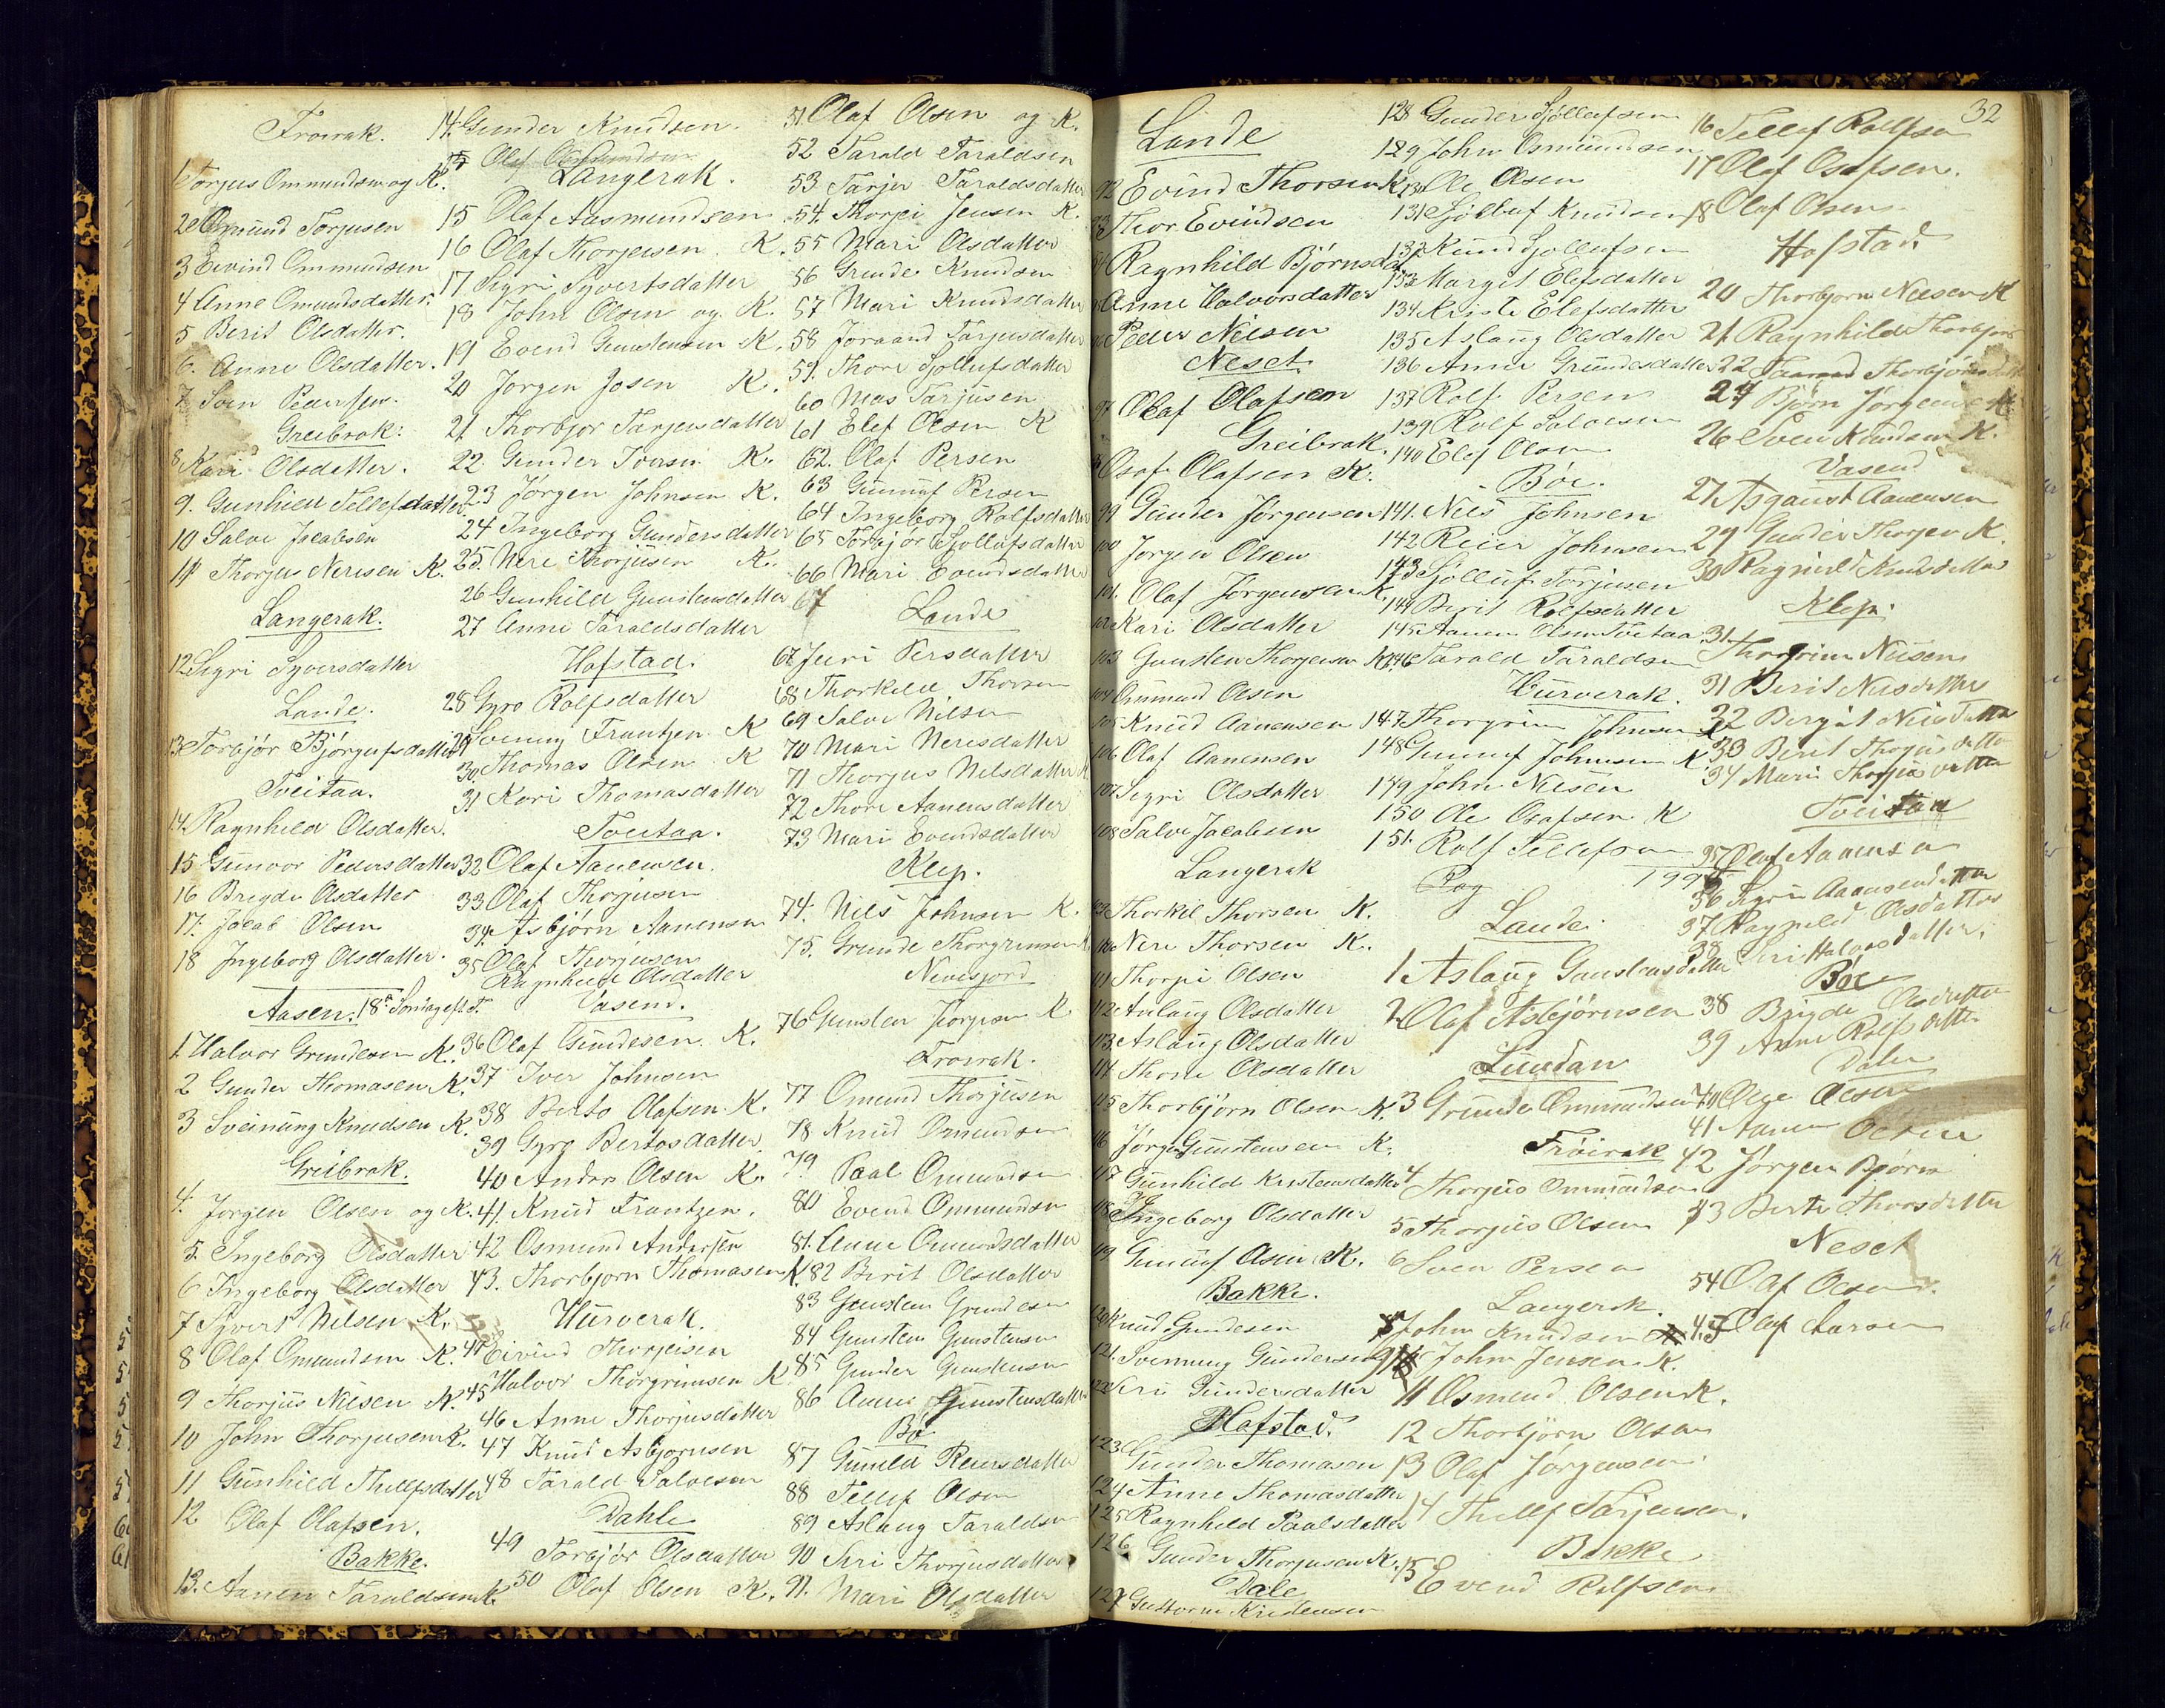 Frøirak.
1 Torgus Ommundsen og K.
2 Omund Torjusen
3 Eivind Ommundsen
4 Anne Omundsdatter.
5 Berit Olsdatter.
6. Anne Olsdatter.
7 Sven Pedersen.
Greibrok.
8 Kari Olsdatter.
9. Gunhild Tellefsdatter
10 Salve Jacobsen
11 Thorjus Nerisen K.
Langerak.
12 Sigri Syversdatter
Lande.
13 Torbjør Bjørgufsdatter
Tveitaa.
14 Ragnhild Olsdatter.
15 Gunvor Pedersdatter
16 Bregde Olsdatter
17. Jacob Olsen
18 Ingeborg Olsdatter.
Aasen. 18de Søndag eft. T.
1. Halvor Grundesen K.
2 Gunder Thomasen K.
3 Sveinung Knudsen K.
Greibrak.
4. Jorgen Olsen og K.
5. Ingeborg Olsdatter
6 Ingeborg Olsdatter
7 Syvert Nilsen K.
8 Olaf Omundsen K.
9 Thorjus Nilsen K.
10 John Thorjusen K.
11 Gunhild Thellefsdatter
12 Olaf Olafsen.
Bakke.
13. Aanen Taraldsen K.
14. Gunder Knudsen.
Langerak.
15 Olaf Aasmundsen
16 Olaf Thorjeisen K.
17 Sigri Syvertsdatter
18 John Olsen og K.
19 Evend Gunstensen K.
20 Jørgen Josen K.
21 Thorbjor Tarjeisdatter
22 Gunder Iversen K.
23 Jørgen Johnsen K.
24 Ingeborg Gundersdatter
25. Nere Thorjusen K.
26 Gunhild Gunstensdatter
27 Anne Taraldsdatter
Hafstad.
28 Gyro Rolfsdatter
29 Svenung Frantzen K
30. Thomas Olsen K
31 Kari Thomasdatter
Tveitaa.
32 Olaf Aanensen.
33 Olaf Thorjusen
34. Asbjørn Aanensen
35 Olaf Thorjusen
Ragnhild Olsdatter
Vasend.
36 Olaf Gundesen. K.
37 Iver Johnsen
38 Berto Olafsen K.
39 Gyro Bertosdatter
40 Anders Olsen K.
41. Knud Frantzen.
42 Osmund Andersen
43. Thorbjorn Thomasen K.
Hurverak.
44 Eivind Thorjeisen
45 Halvor Thorgrimsen K
46 Anne Thorjusdatter
47 Knud Asbjornsen
48 Tarald Salvesen
Dahle
49 Torbjør Olsdatter
50 Olaf Olsen K.
51. Olaf Olsen og K.
52 Tarald Taraldsen
53 Tarjer Taraldsdatter
54. Thorjei Jensen K.
55 Mari Olsdatter
56 Grunde Knudsen
57 Mari Knudsdatter
58 Joraand Tarjusdatter
59. Thore Sjollufsdatter
60 Mas Tarjusen
61 Elef Olsen K
62. Olaf Persen
63 Gunnuf Persen
64 Ingeborg Rolfsdatter
65 Torbjør Sjollufsdatter
66 Mari Evendsdatter
67 Lande
67 Juri Persdatter
68 Thorkild Thorsen
69 Salve Nilsen
70 Mari Nerisdatter
71 Thorgus Nilsdatter
72 Thore Aanensdatter
73 Mari Evendsdatter
Klep.
74. Nils Johnsen K.
75. Grunde Thorgrimsen
Nevesjord
76 Gunsten Jorgsen K
Frovrak.
77 Omund Thorjusen
78 Knud Omundsen
79 Paal Omundsen
80 Evend Ommundsen
81. Anne Omundsdatter
82 Berit Olsdatter
83 Gunsten Grundesen
84 Gunsten Gunstensen
85 Gunder Gunstensen
86 Anne Gunstensdatter
Bø
87 Gunild Reiersdatter
88 Tellef Olsen
89 Aslaug Taraldsen
90 Siri Thorjusdatter
91. Mari Olsdatter
32
Lande
92 Evind Thorsen K.
93 Thor Evindsen
94 Ragnhild Bjørnsdat
95 Anne Halvorsdatter
96 Peder Neisen
Neset
97 Olaf Olafsen
Greibrak.
98 Osof Olafsen K.
99 Gunder Jørgensen
100 Jorgen Olsen
101. Olaf Jørgensen K.
102 Kari Olsdatter
103 Gunsten Thorjeisen K.
104 Ommund Olsen
105 Knud Aanensen
106 Olaf Aanensen
107 Segri Olsdatter
108 Salve Jacobsen
Langerak
109 Thorkil Thorsen K.
110 Nere Thorsen K.
111 Thorjei Olsen
112 Aslaug Olsdatter
113. Aslaug Olsdatter
114 Thore Olsdatter
115 Thorbjørn Olsen K.
116 Jørgen Gunstensen K.
117 Gunhild Kristensdatter
118 Ingeborg Olsdatter
119 Gunnuf Olsen K.
Bakke.
120 Knud Gundesen
121. Svennung Gundersen
122 Siri Gundersdatter
Hafstad.
123 Gunder Thomasen
124 Anne Thomasdatter
125 Ragnhild Paalsdatter
126 Gunder Thorjusen K.
Dale
127 Guttorm Kristensen
128 Gunder Sjøllufsen
129 John Osmundsen
130 Ole Olsen
131 Sjølluf Knudsen
132 Knud Sjollufsen
133 Margit Elefsdatter
134 Kriste Elefsdatter
135 Aslaug Olsdatter
136 Anne Grundesdatter
137 Rolf Persen
139 Rolf Salvesen
140 Elef Olsen
Bøe.
141. Nils Johnsen
142 Reier Johnsen
143 Sjølluf Torjusen
144 Berit Rolfsdatter
145 Aanen Olsen Tveitaa.
146 Tarald Taraldsen
Hurverak.
147 Thorgrim Johnsen K
148 Gunnuf Johnsen K
149 John Neisen
150 Ole Osafsen K
151. Rolf Tellefsen
Lande.
1 Aslaug Gunstensdatter
2 Olaf Asbjørnsen
Lundan
3 Grunde Ommundsen
Frøirak
4 Thorjus Ommundsen
5 Thorjus Olsen
6 Sven Persen
Langerak.
John Knudsen
John Jensen K.
11 Osmund Olsen K.
12 Thorbjørn Olsen
13 Olaf Jørgensen
14 Thellef Tarjeusen.
Bakke
15 Evend Rolfsen
16 Tellef Rolfsen
17 Olaf Osafsen.
18 Olaf Olsen
Hofstad.
20 Thorbjorn Nilsen K
21 Ragnhild Thorbjørns
22 Thorbjørnsdatter
24 Bjørn Jørgensen K
26 Sven Knudsen K.
Vasend
27 Asgaust Aanensen
29 Gunder Thorjen K.
30 Ragnild Knudsdatter
Klep.
31 Thorgrim Nilsen
31 Berit Nilsdatter
32 Bergit Nilsdatter
33 Berit Thorjusdatter
34 Mari Thorjusdatter
Tveitaa
35 Olaf Aanensen
36 Sigrin Aanensendatter
37 Ragnild Olsdatter
38 Siri Halvorsdatter.
Bøe
38 Brigde Olsdatter
39 Anne Rolfsdatter
Dale
40 Olge Olsen
41 Aanen Olsen
42 Jørgen Bjørn
43 Berte Thorsdatter
Neset
54 Olaf Olsen.
45 Olaf Larsen